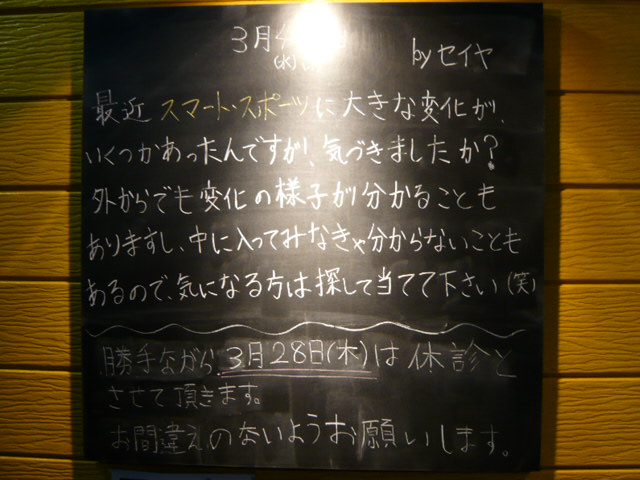 3月
(水) by セイヤ
最近 スマート・スポーツに大きな変化が、
いくつかあったんですが、気づきましたか?
外からでも変化の様子が分かることも
ありますし、中に入ってみなきゃ分からないことも
あるので、気になる方は探して当てて下さい(笑)
勝手ながら 3月28日(木)は休診と
させて頂きます。
お間違えのないようお願いします。